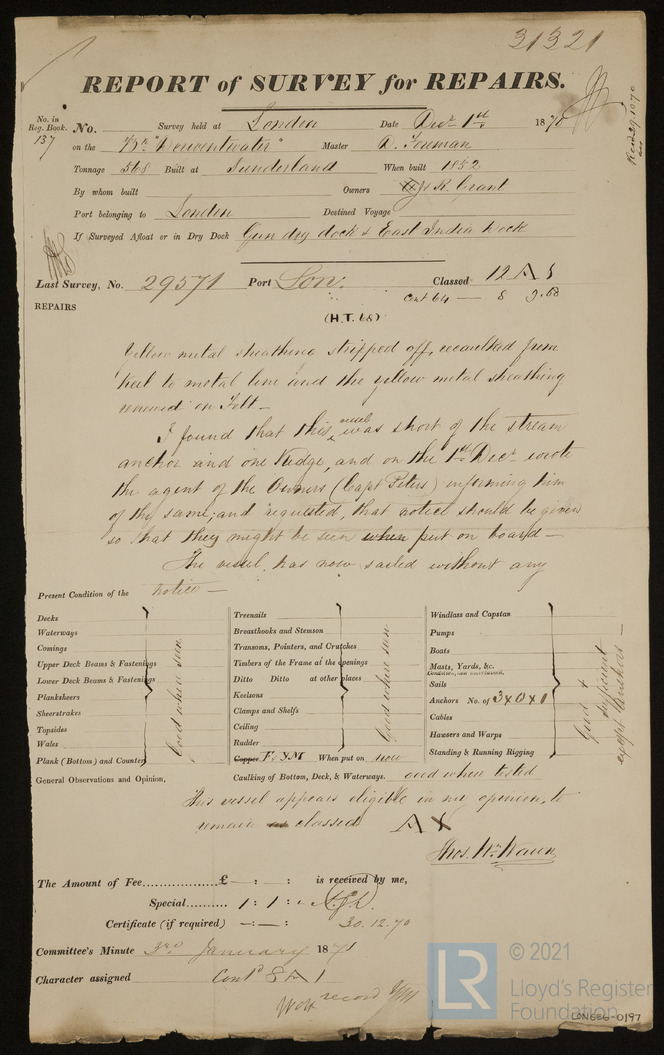 31321
REPORT of SURVEY for REPAIRS.
No. in Reg. Book. 137
No. Survey held at London Date Decr 1st 1870
Recd 29.10.70
on the Bk "Derwentwater" Master D. Foreman
Tonnage 568 Built at Sunderland When built 1852
By whom built Owners R. Grant
Port belonging to London Destined Voyage
If Surveyed Afloat or in Dry Dock Gun dry dock & East India Dock
Last Survey, No. 29571 Port Lon. Classed 12 A 1
Cont 64 — 8 9.68
REPAIRS
(H.T. 68)
Yellow metal sheathing stripped off, recaulked from
keel to metal line and the yellow metal sheathing
renewed on Felt —
I found that this vessel was short of the stream
anchor and one Kedge, and on the 1st Decr wrote
the agent of the Owners (Capt Peters) informing him
of the same; and requested, that notice should be given
so that they might be seen when put on board —
The vessel has now sailed without any
notice —
Present Condition of the
Decks
Waterways
Comings
Upper Deck Beams & Fastenings
Lower Deck Beams & Fastenings
Planksheers
Sheerstrakes
Topsides
Wales
Plank (Bottom) and Counter
Good where seen
Treenails
Breasthooks and Stemson
Transoms, Pointers, and Crutches
Timbers of the Frame at the openings
Ditto Ditto at other places
Keelsons
Clamps and Shelfs
Ceiling
Rudder
Copper F & YM When put on now
Good where seen
Windlass and Capstan
Pumps
Boats
Masts, Yards, &c.
Sails
Anchors No. of 3 x 0 x 0
Cables
Hawsers and Warps
Standing & Running Rigging
Good & sufficient except Anchors —
General Observations and Opinion,
Caulking of Bottom, Deck, & Waterways. good when tested
This vessel appears eligible in my opinion, to
remain as classed A
Thos. Wm Wawn
The Amount of Fee £ — : — : is received by me,
Special 1 : 1 :
Certificate (if required) — : — : 30.12.70
Committee's Minute 3rd January 1871
Character assigned Contd 8 A 1
record
LR
© 2021
Lloyd's Register
Foundation
LON686-0197